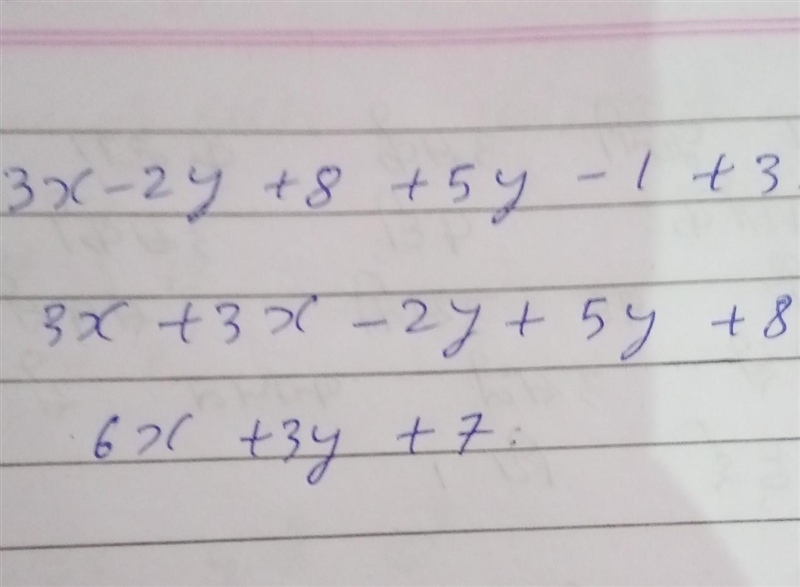 3x - 2y + 8 + 5y - 1 + 3
3x + 3x - 2y + 5y + 8
6x + 3y + 7